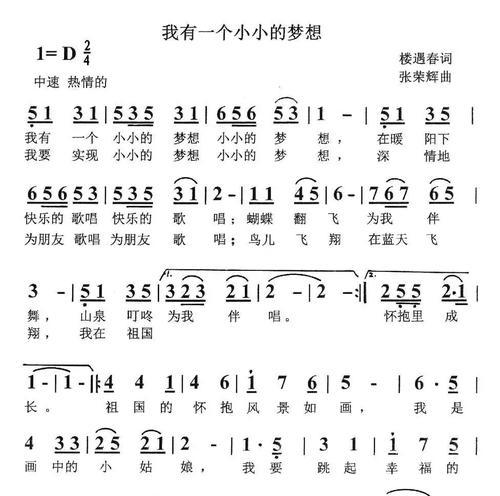 我有一个小小的梦想
1=D 2/4
楼遇春词
中速 热情的
张荣辉曲
51 31 | 535 31 | 656 53 | 1 - | 51 35 |
我有 一个 小小的 梦想 小小的 梦 想， 在暖 阳下
我要 实现 小小的 梦想 小小的 梦 想， 深 情地
656 535 | 31 | 2 - | 11 35 | 1 - | 767 65 |
快乐的 歌唱 快乐的 歌 唱；蝴蝶 翻 飞 为我 伴
为朋友 歌唱 为朋友 歌 唱；鸟儿 飞 翔 在蓝天 飞
3 - | 51 35 | 1. 323 21 | 2 - | 2 - :| 2. 255 2·1 |
舞， 山泉 叮咚 为我 伴 唱。 怀抱里 成
翔， 我在 祖国
1 - | 1 - :| 4 41 | 61 654 | 5 - | 1· 5 |
长。 祖国的 怀抱 风景如 画， 我 是
4 43 | 25 21 | 2 - | 1· 5 | 3 1 | 4· 4 4 |
画中的 小 姑 娘，我 要 跳起 幸福的